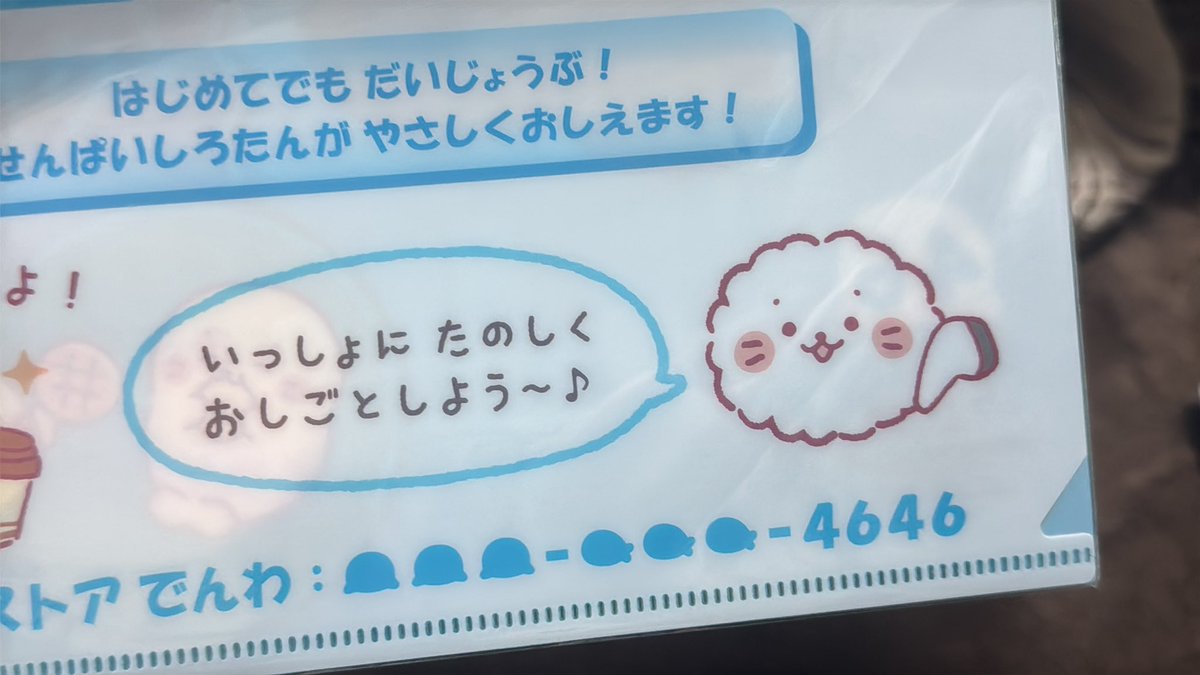 はじめてでも だいじょうぶ！
せんぱいしろたんが やさしくおしえます！
よ！
いっしょに たのしく
おしごとしよう～♪
ストア でんわ：
-
-4646